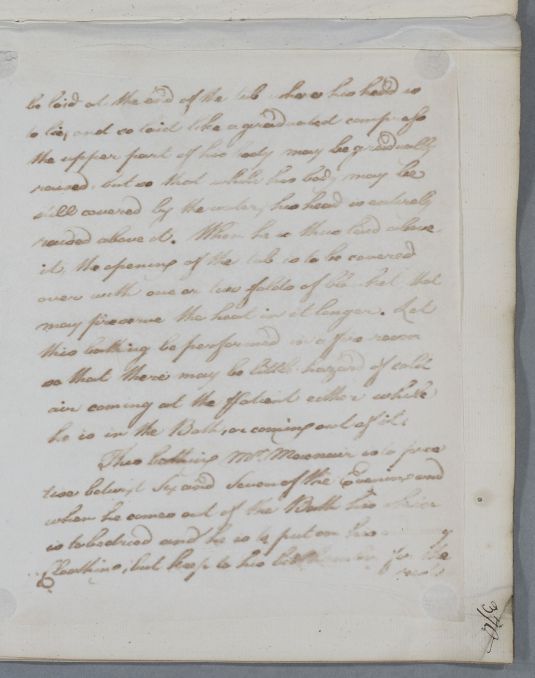 be laid at the end of the tub where his head is
to lie, and so laid like a graduated compress
the upper part of his body may be gradually
raised, but so that while his body may be
still covered by the water, his head is entirely
raised above it. When he is thus laid above
it the opening of the tub is to be covered
over with one or two folds of blanket that
may preserve the heat in it longer. Let
this bathing be performed in a fire room
so that there may be little hazard of cold
air coming at the Patient either while
he is in the Bath, or coming out of it.
This bathing Mr. is to prac
tise betwixt Six and Seven of the Evening and
when he comes out of the Bath his
is to be dried and he is to put on his
Cloathing, but keep to his for the
rest